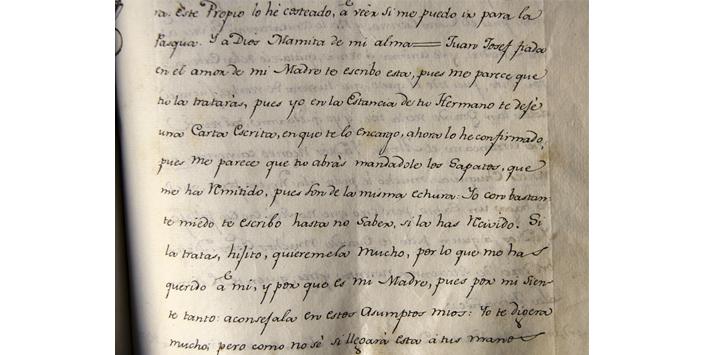 ra. Este Propio lo he costeado, a veer si me puedo ir para la
Pasqua. Y a Dios Mamita de mi alma= Juan Josef fiada
en el amor de mi Madre te escribo esta, pues me parece que
tu la tratarás, pues yo en la Estancia de tu Hermano te dejé
una Carta Escrita, en que te lo encargo, ahora lo he confirmado,
pues me parece que tu abrás mandadole los Sapatos, que
me ha Remitido, pues son de la misma echura: Yo con bastan-
te miedo te escribo hasta no Saber, si la has Recivido. Si
la tratas, hijito, quieremela mucho, por lo que me ha
querido a mi, y por que es mi Madre, pues por mi Sien-
te tanto: aconsejala en estos Asumptos mios: Yo te digera
mucho, pero como no sé si llegará esta á tus manos